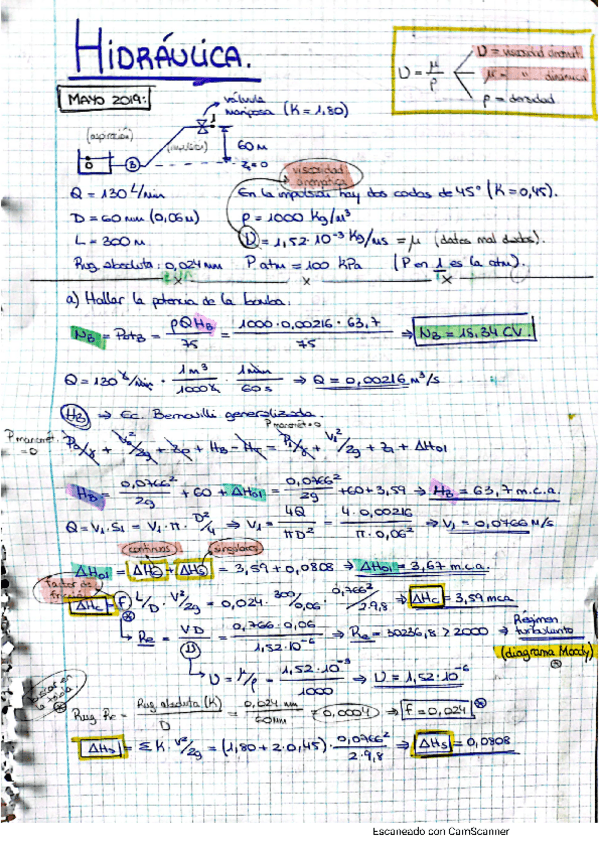 HIDRÁULICA.
υ = μ/ρ
υ = viscosidad cinemát.
μ = " dinámica
ρ = densidad
MAYO 2019:
válvula
mariposa (K = 1,80)
(aspiración)
(impulsión)
60 m
B
z₀ = 0
viscosidad
cinemática
Q = 130 L/min
En la impulsión hay dos codos de 45° (K = 0,45).
D = 60 mm (0,06 m)
ρ = 1000 Kg/m³
L = 300 m
υ = 1,52 · 10⁻³ Kg/ms = μ (datos mal dados).
Rug. absoluta: 0,024 mm
P atm = 100 kPa
(P en 1 es la atm).
a) Hallar la potencia de la bomba.
N_B = Pot_B = ρQH_B/75 = 1000 · 0,00216 · 63,7/75 ⇒ N_B = 18,34 CV.
Q = 130 L/min · 1 m³/1000 L · 1 min/60 s ⇒ Q = 0,00216 m³/s
H_B ⇒ Ec. Bernoulli generalizada.
P manomét. = 0
P manomét = 0
P₀/γ + V₀²/2g + z₀ + H_B - H_T = P₁/γ + V₁²/2g + z₁ + ΔH₀₁
H_B = 0,0766²/2g + 60 + ΔH₀₁ = 0,0766²/2g + 60 + 3,59 ⇒ H_B = 63,7 m.c.a.
Q = V₁ · S₁ = V₁ · π · D²/4 ⇒ V₁ = 4Q/πD² = 4 · 0,00216/π · 0,06² ⇒ V₁ = 0,0766 m/s
continuas
singulares
ΔH₀₁ = ΔH_C + ΔH_S = 3,59 + 0,0808 ⇒ ΔH₀₁ = 3,67 m.c.a.
factor de
fricción
ΔH_C = f · L/D · V²/2g = 0,024 · 300/0,06 · 0,766²/2·9,8 ⇒ ΔH_C = 3,59 mca
Re = VD/υ = 0,766 · 0,06/1,52 · 10⁻⁶ ⇒ Re = 30236,8 > 2000 ⇒ Régimen
turbulento
(diagrama Moody)
υ = μ/ρ = 1,52 · 10⁻³/1000 ⇒ υ = 1,52 · 10⁻⁶
Rug. Re = Rug. absoluta (K)/D = 0,024 mm/60 mm = 0,0004 ⇒ f = 0,024
ΔH_S = Σ K · V²/2g = (1,80 + 2 · 0,45) · 0,0766²/2 · 9,8 ⇒ ΔH_S = 0,0808
Escaneado con CamScanner